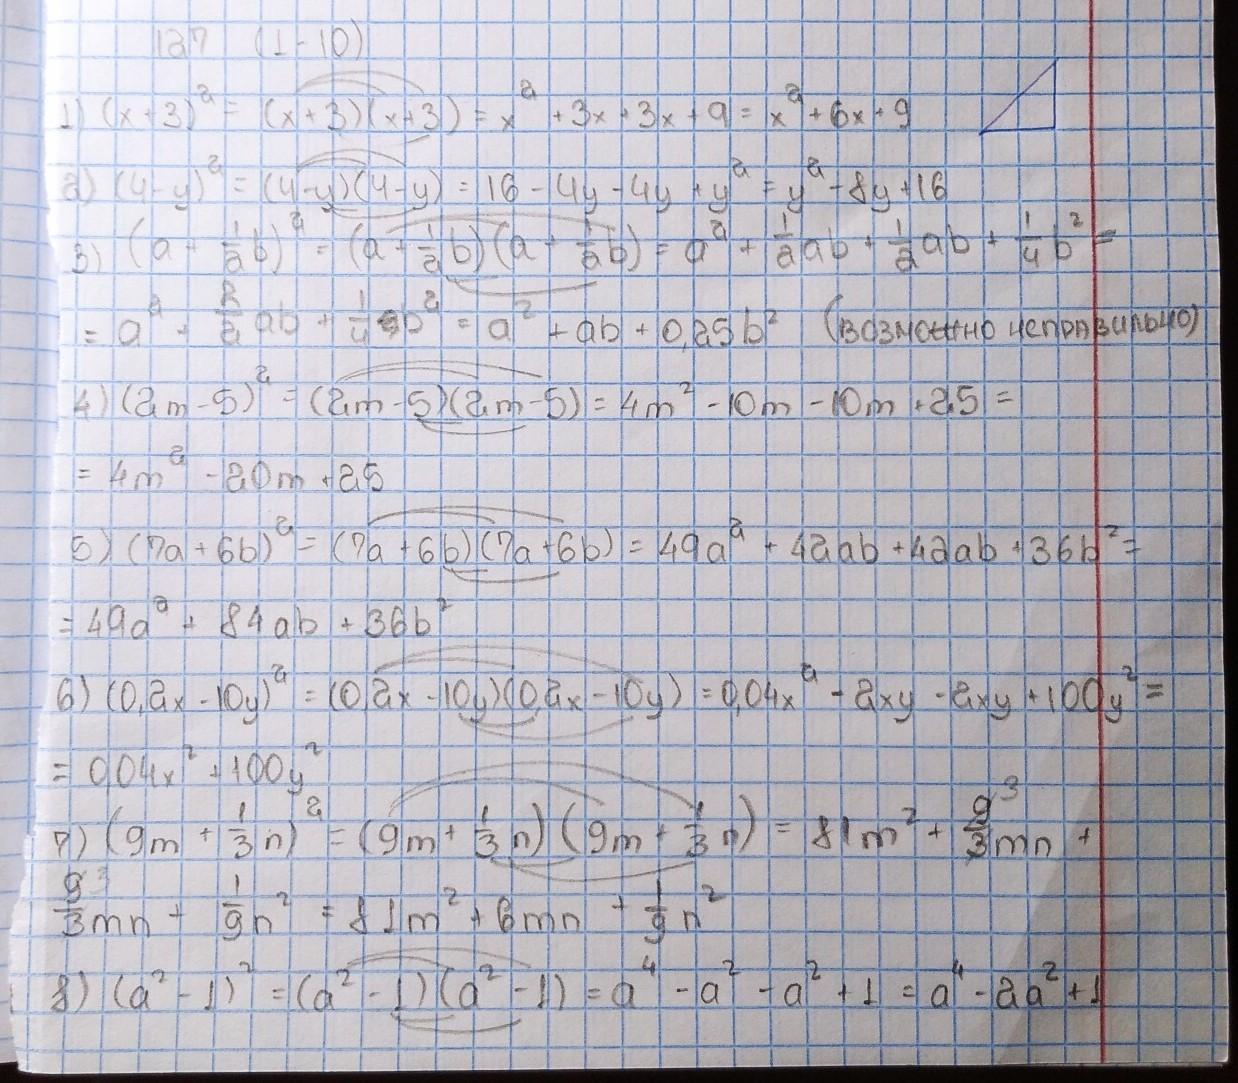 127 (1-10)
1) (x+3)² = (x+3)(x+3) = x² + 3x + 3x + 9 = x² + 6x + 9
2) (4-y)² = (4-y)(4-y) = 16 - 4y - 4y + y² = y² - 8y + 16
3) (a + 1/2 b)² = (a + 1/2 b)(a + 1/2 b) = a² + 1/2 ab + 1/2 ab + 1/4 b² =
= a² + 2/2 ab + 1/4 b² = a² + ab + 0,25b² (возможно неправильно)
4) (2m-5)² = (2m-5)(2m-5) = 4m² - 10m - 10m + 25 =
= 4m² - 20m + 25
5) (7a+6b)² = (7a+6b)(7a+6b) = 49a² + 42ab + 42ab + 36b² =
= 49a² + 84ab + 36b²
6) (0,2x - 10y)² = (0,2x - 10y)(0,2x - 10y) = 0,04x² - 2xy - 2xy + 100y² =
= 0,04x² + 100y²
7) (9m + 1/3 n)² = (9m + 1/3 n)(9m + 1/3 n) = 81m² + 9/3 ³ mn +
9/3 ³ mn + 1/9 n² = 81m² + 6mn + 1/9 n²
8) (a² - 1)² = (a² - 1)(a² - 1) = a⁴ - a² - a² + 1 = a⁴ - 2a² + 1